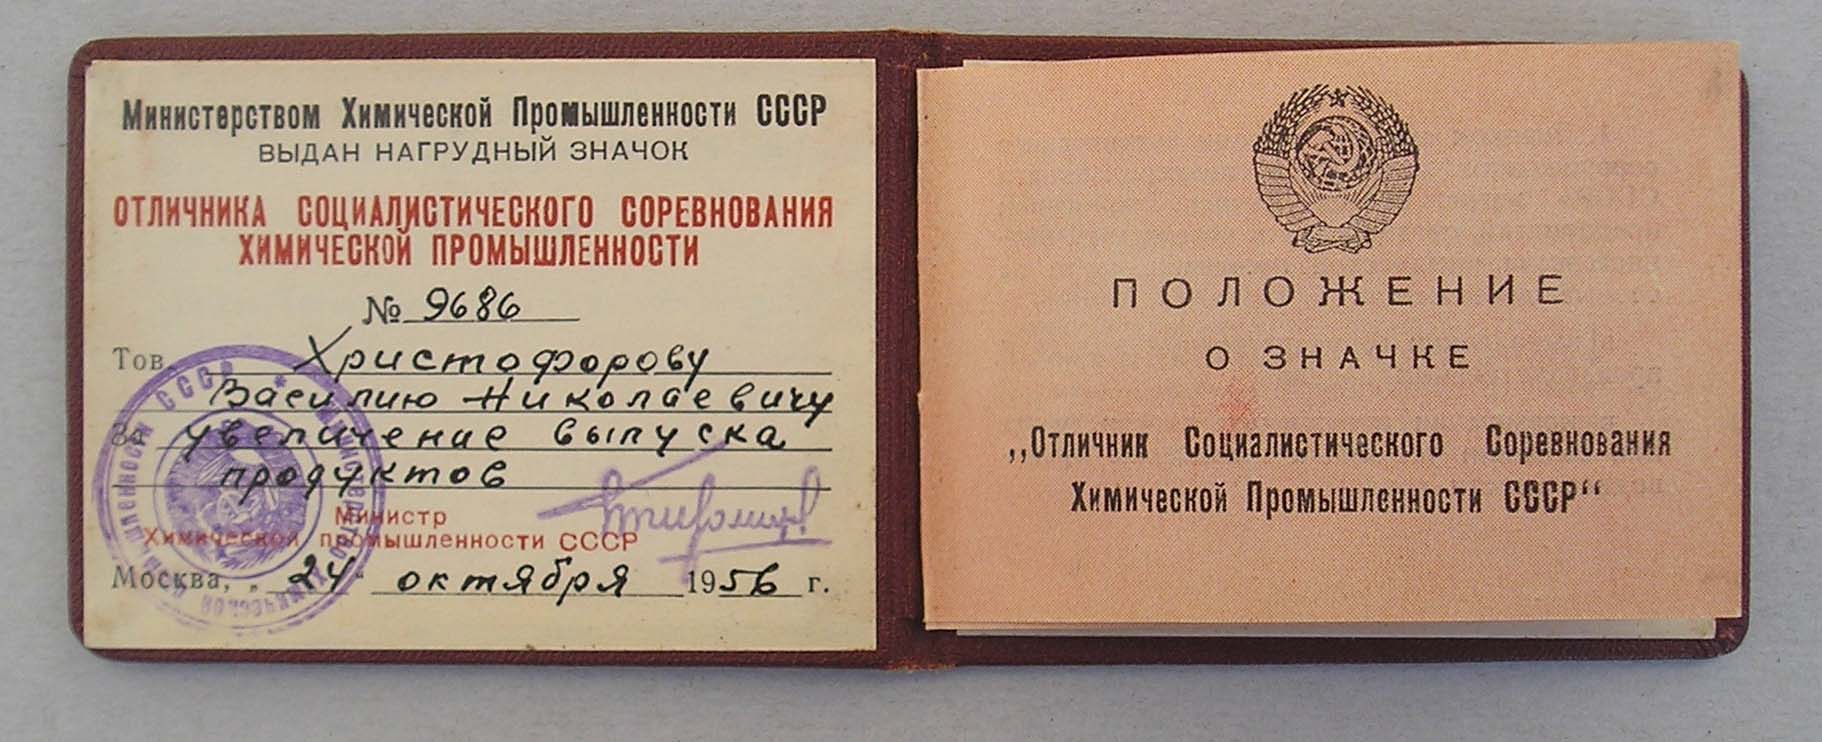 Министерством Химической Промышленности СССР
ВЫДАН НАГРУДНЫЙ ЗНАЧОК
ОТЛИЧНИКА СОЦИАЛИСТИЧЕСКОГО СОРЕВНОВАНИЯ
ХИМИЧЕСКОЙ ПРОМЫШЛЕННОСТИ
№ 9686
Тов. Христофорову
Василию Николаевичу
За увеличение выпуска
продуктов
Министр
Химической промышленности СССР
Москва, „24" октября 1956 г.
ПОЛОЖЕНИЕ
О ЗНАЧКЕ
„Отличник Социалистического Соревнования
Химической Промышленности СССР"